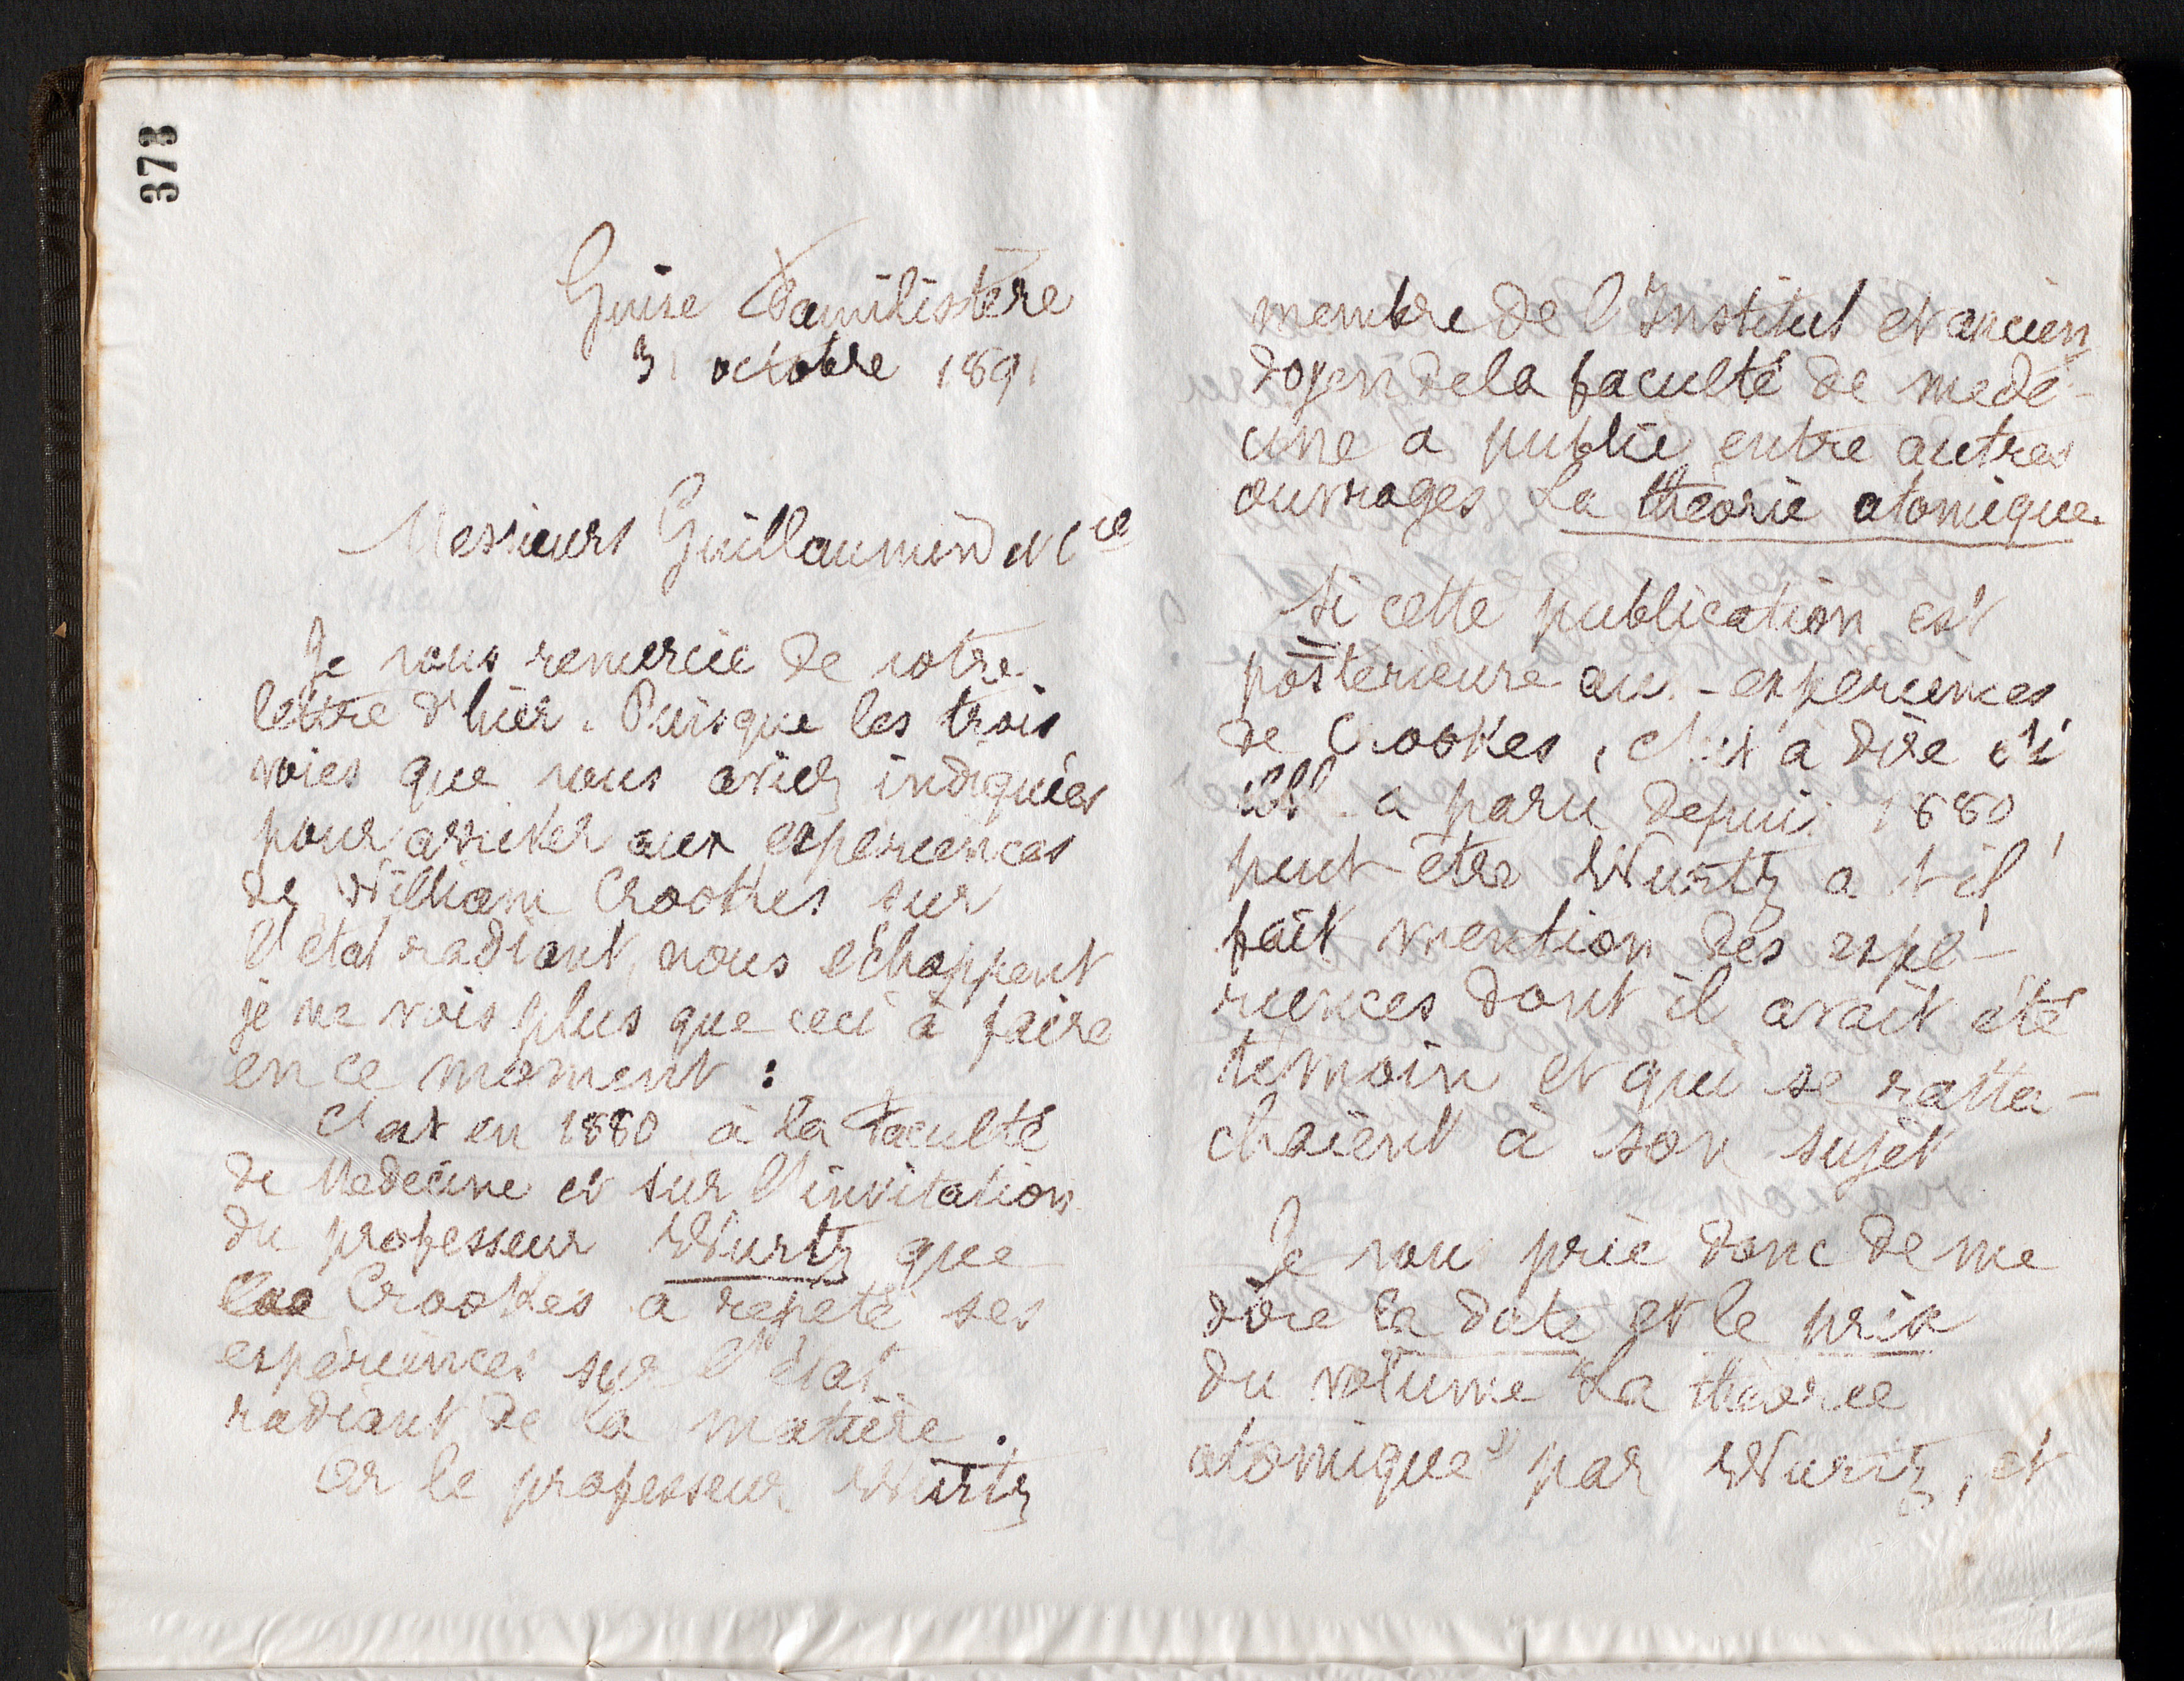 378
Guise Familistère
31 octobre 1891
Messieurs Guillaumin et Cie
Je vous remercie de votre
lettre d'hier. Puisque les trois
voies que vous aviez indiquées
pour arriver aux expériences
de William Crookes sur
l'état radiant, nous échappent
je ne vois plus que ceci à faire
en ce moment :
C'est en 1880 à la Faculté
de Medecine et sur l'invitation
du professeur Wurtz que
Crookes a repété ses
expériences sur l'état
radiant de la matière.
Or le professeur Wurtz
membre de l'Institut et ancien
doyen de la faculté de mede-
cine a publié entre autres
ouvrages La théorie atomique.
Si cette publication est
postérieure aux expériences
de Crookes, c'est à dire si
elle a paru depuis 1880,
peut-être Wurtz a t-il
fait mention des expé-
riences dont il avait été
témoin et qui se ratta-
chaient à son sujet
Je vous prie donc de me
dire la date et le prix
du volume "La théorie
atomique" par Wurtz, et